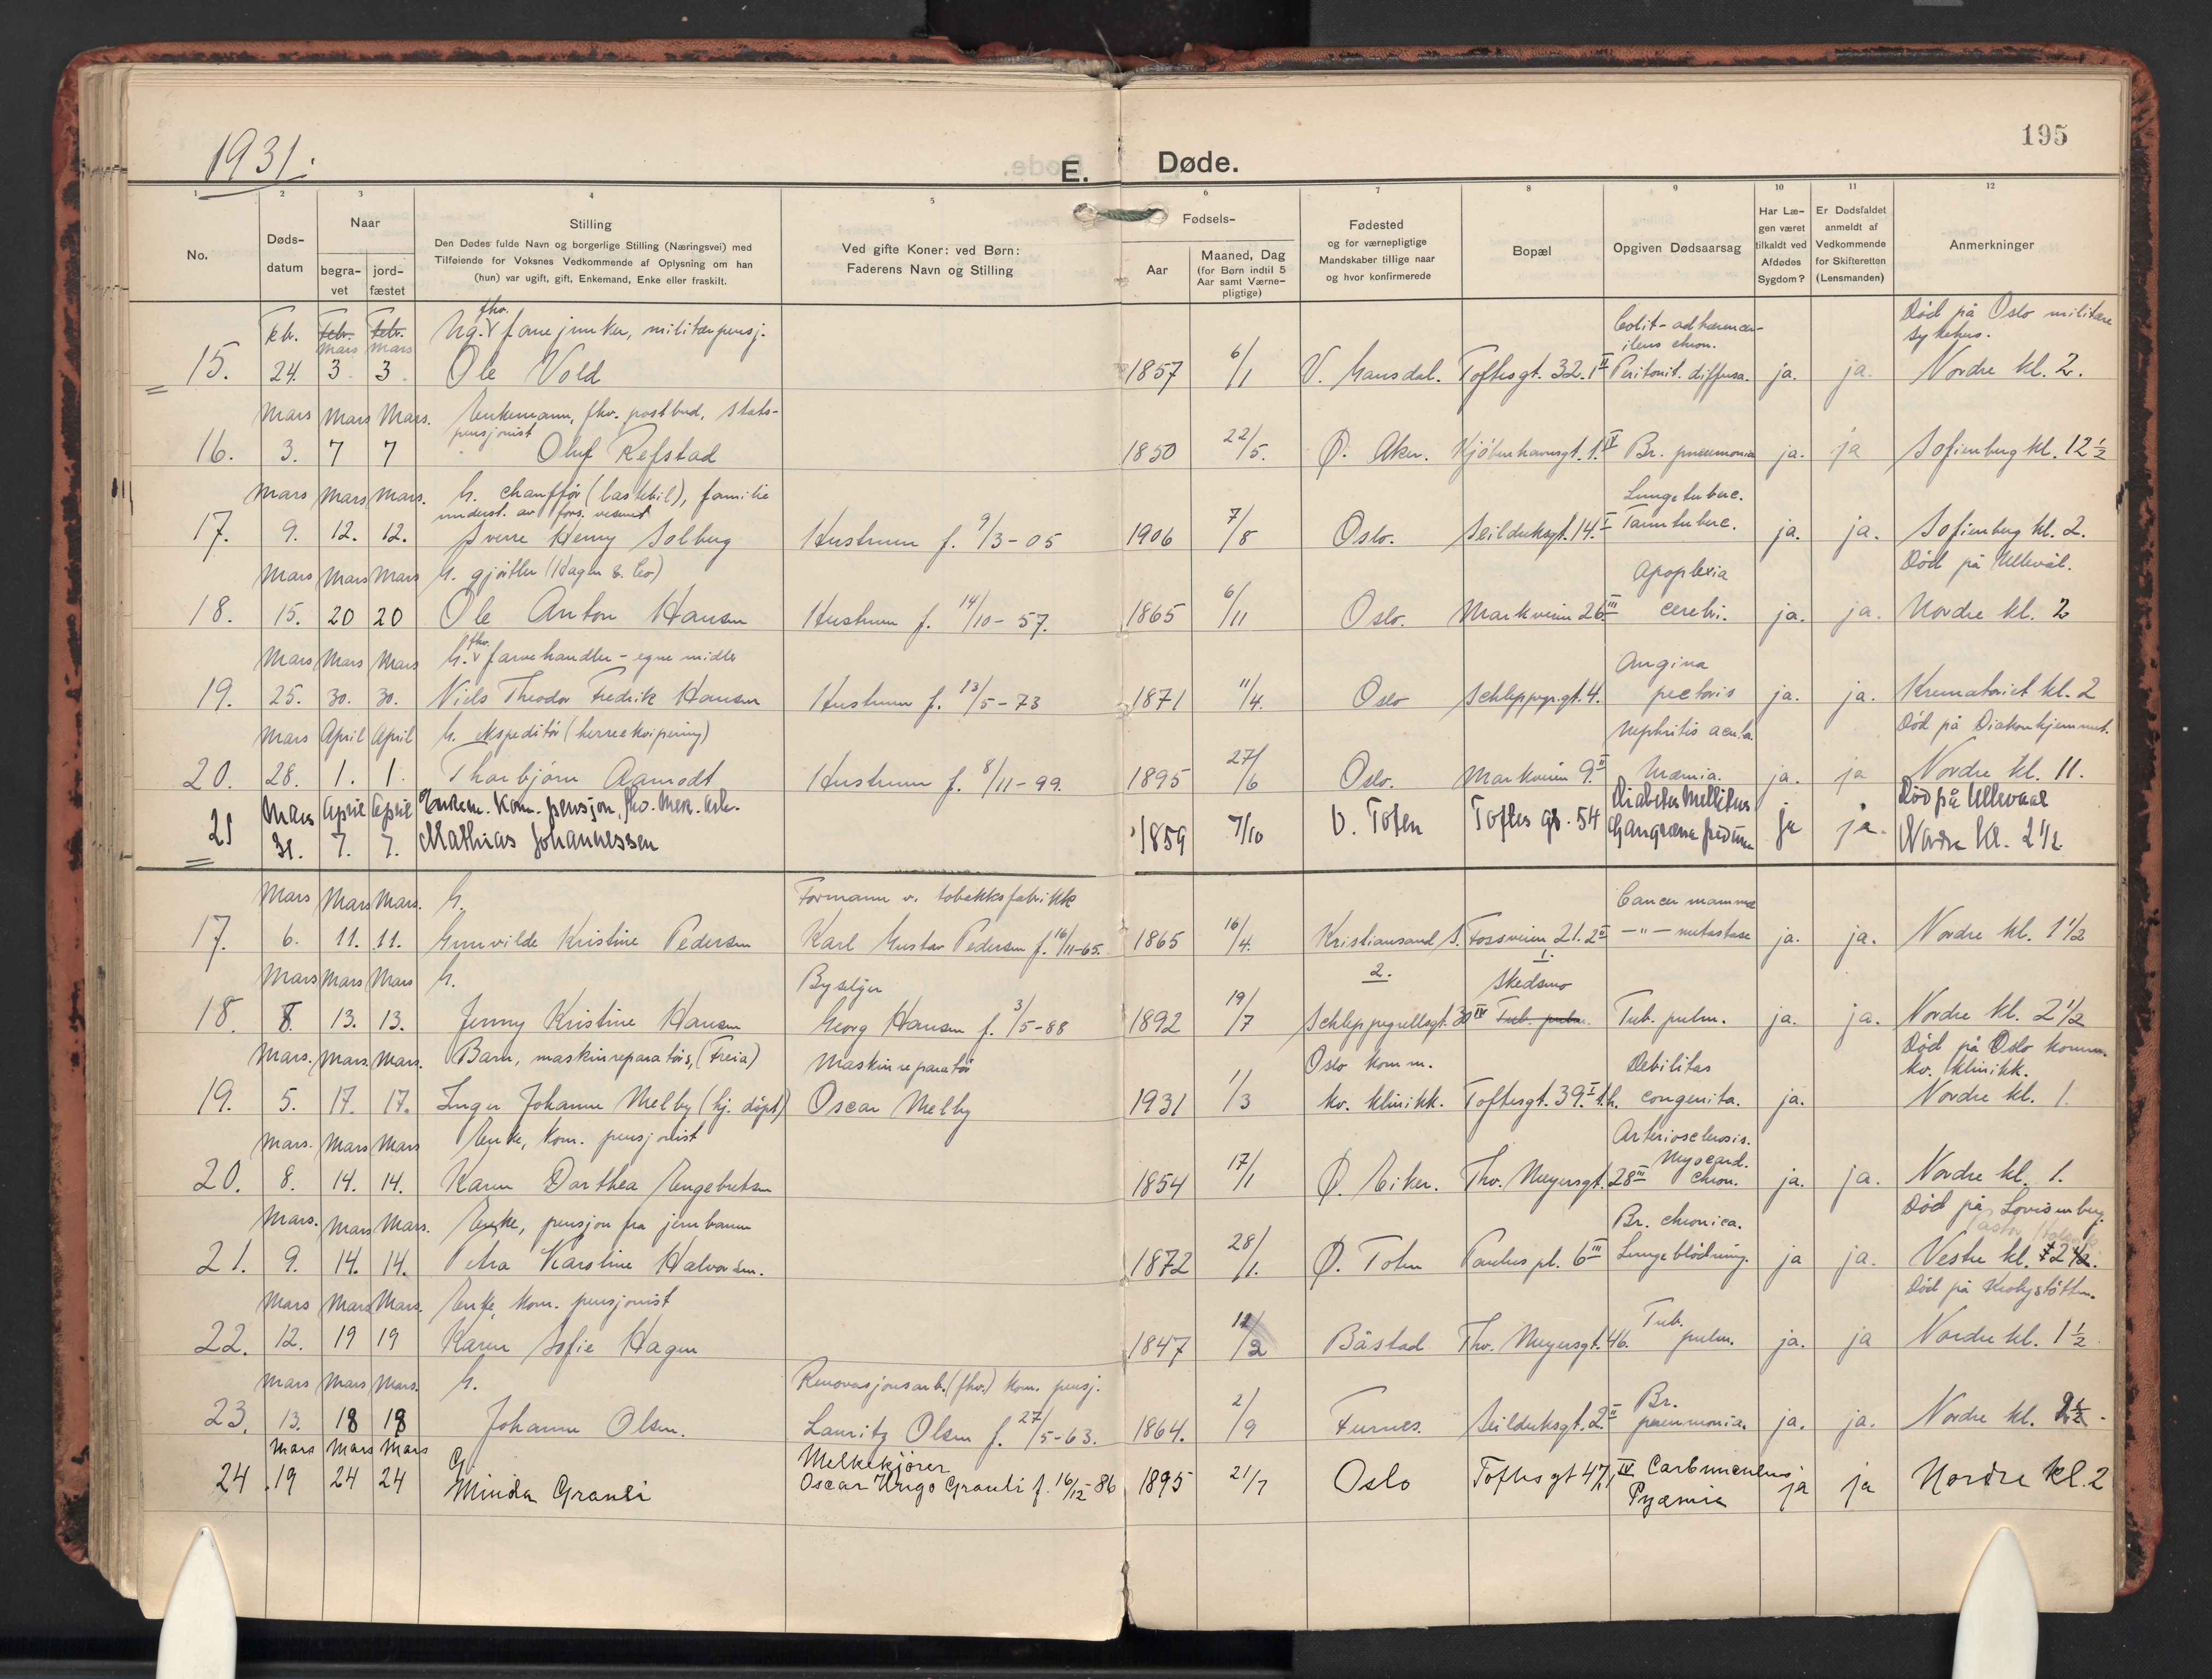 1931.
195
E. Døde.
1 2 3 4 5 6 7 8 9 10 11 12
No.
Døds-
datum
Naar
begra-
vet
jord-
fæstet
Stilling
Den Dødes fulde Navn og borgerlige Stilling (Næringsvei) med
Tilføiende for Voksnes Vedkommende af Oplysning om han
(hun) var ugift, gift, Enkemand, Enke eller fraskilt.
Ved gifte Koner: ved Børn:
Faderens Navn og Stilling
Fødsels-
Aar
Maaned, Dag
(for Børn indtil 5
Aar samt Værne-
pligtige)
Fødested
og for værnepligtige
Mandskaber tillige naar
og hvor konfirmerede
Bopæl
Opgiven Dødsaarsag
Har Læ-
gen været
tilkaldt ved
Afdødes
Sygdom?
Er Dødsfaldet
anmeldt af
Vedkommende
for Skifteretten
(Lensmanden)
Anmerkninger
fhv.
Feb. febr. febr. Ug. fanejunker, militærpensj. Død på Oslo militære
mars mars sykehus.
15. 24. 3. 3. Ole Vold 1857 6/1 V. Gausdal. Toftesgt. 32. II Peritonit. diffusa. ja. ja. Nordre kl. 2.
Mars Mars Mars. Enkemann, fhv. postbud, stats-
pensjonist
16. 3. 7 7 Oluf Refstad 1850 22/5. Ø. Aker. Kjøbenhavnsgt. 1. IV Br. pneumonia ja. ja Sofienberg kl. 12 1/2
Mars Mars Mars. G. chauffør (lastebil), familie Lungetuberc.
underst. av fors. vesenet
17. 9. 12. 12. Sverre Henry Solberg Hustruen f. 9/3-05 1906 7/8 Oslo. Seilduksgt. 14. I Tarmtuberc. ja. ja. Sofienberg kl. 2.
Mars Mars Mars G. gjørtler (Hagen & Co) Apoplexia Død på Ullevål.
18. 15. 20 20 Ole Anton Hansen Hustruen f. 14/10-57. 1865 6/11 Oslo. Markveien 26. III cerebri. ja. ja. Nordre kl. 2
Mars Mars Mars G. fhv. farvehandler - egne midler Angina
19. 25. 30. 30. Niels Theodor Fredrik Hansen Hustruen f. 13/5-73 1871 11/4. Oslo Schleppegr.gt. 4. pectoris ja. ja. Krematoriet kl. 2
Mars April April G. ekspeditør (herreekvipering) Nephritis acuta. Død på Diakonhjemmet.
20. 28. 1. 1. Thorbjørn Aamodt Hustruen f. 8/11-99. 1895 27/6 Oslo. Markveien 9. II Uræmia. ja. ja Nordre kl. 11.
Mars April April Enkem. Kom. pensjon, fhv. Mek. arb. Diabetes Mellitus Død på Ullevaal
21 31. 7. 7. Mathias Johannessen 1859 7/10 V. Toten Toftes gt. 54 Gangræna pedum ja ja. Nordre kl. 2 1/2
Mars Mars Mars. G. Formann v. tobakksfabrikk Cancer mammæ
17. 6. 11. 11. Gunvilde Kristine Pedersen Karl Gustav Pedersen f. 16/11-65. 1865 16/4. Kristiansand S. Fossveien 21. 2 II - " - metastase ja. ja. Nordre kl. 1 1/2
Mars Mars Mars G. Byseljer 2. 1. Skedsmo
18. 8. 13. 13. Jenny Kristine Hansen Georg Hansen f. 3/5-88 1892 19/7 Schleppegrellsgt. 30 IV Tub. pulm. Tub. pulm. ja. ja. Nordre kl. 2 1/2
Mars. Mars. Mars. Barn, maskinreparatørs, (Freia) Maskinreparatør Oslo komm. Debilitas Død på Oslo komm.
kv. klinikk.
19. 5. 17. 17. Inger Johanne Melby (hj. døpt) Oscar Melby 1931 1/3 kv. klinikk. Toftesgt. 39. I t.h. congenita. ja. Nordre kl. 1.
Mars. Mars Mars Enke, kom. pensjonist Arteriosclerosis.
Myocard.
20. 8. 14. 14. Karen Dorthea Engebretsen 1854 17/1 Ø. Eiker. Thv. Meyersgt. 28 III chron. ja. ja. Nordre kl. 1.
Mars. Mars Mars. Enke, pensjon fra jernbanen Br. chronica. Død på Lovisenberg.
21. 9. 14. 14. Petra Karoline Halvorsen. 1872 28/1. Ø. Toten Paulus pl. 6 III Lungeblødning. ja ja. Vestre kl. 2 1/2.
Mars Mars Mars. Enke, kom. pensjonist Tub. Død på Krohgstøtten.
22. 12. 19 19 Karen Sofie Hagen 1847 12/2 Båstad Thv. Meyersgt. 46. pulm. ja. ja Nordre kl. 1 1/2
Mars Mars Mars. G. Renovasjonsarb. (fhv.) kom. pensj. Br.
23. 13. 18 18 Johanne Olsen. Lauritz Olsen f. 27/5-63. 1864. 2/9 Furnes. Seilduksgt. 2 II pneumonia. ja. ja. Nordre kl.
Mars Mars Mars G. Melkekjører Carbunculus
24 19 24 24 Minda Granli Oscar Hugo Granli f. 16/12-86 1895 21/7 Oslo Toftesgt 47, IV Pyæmie ja ja Nordre kl. 2